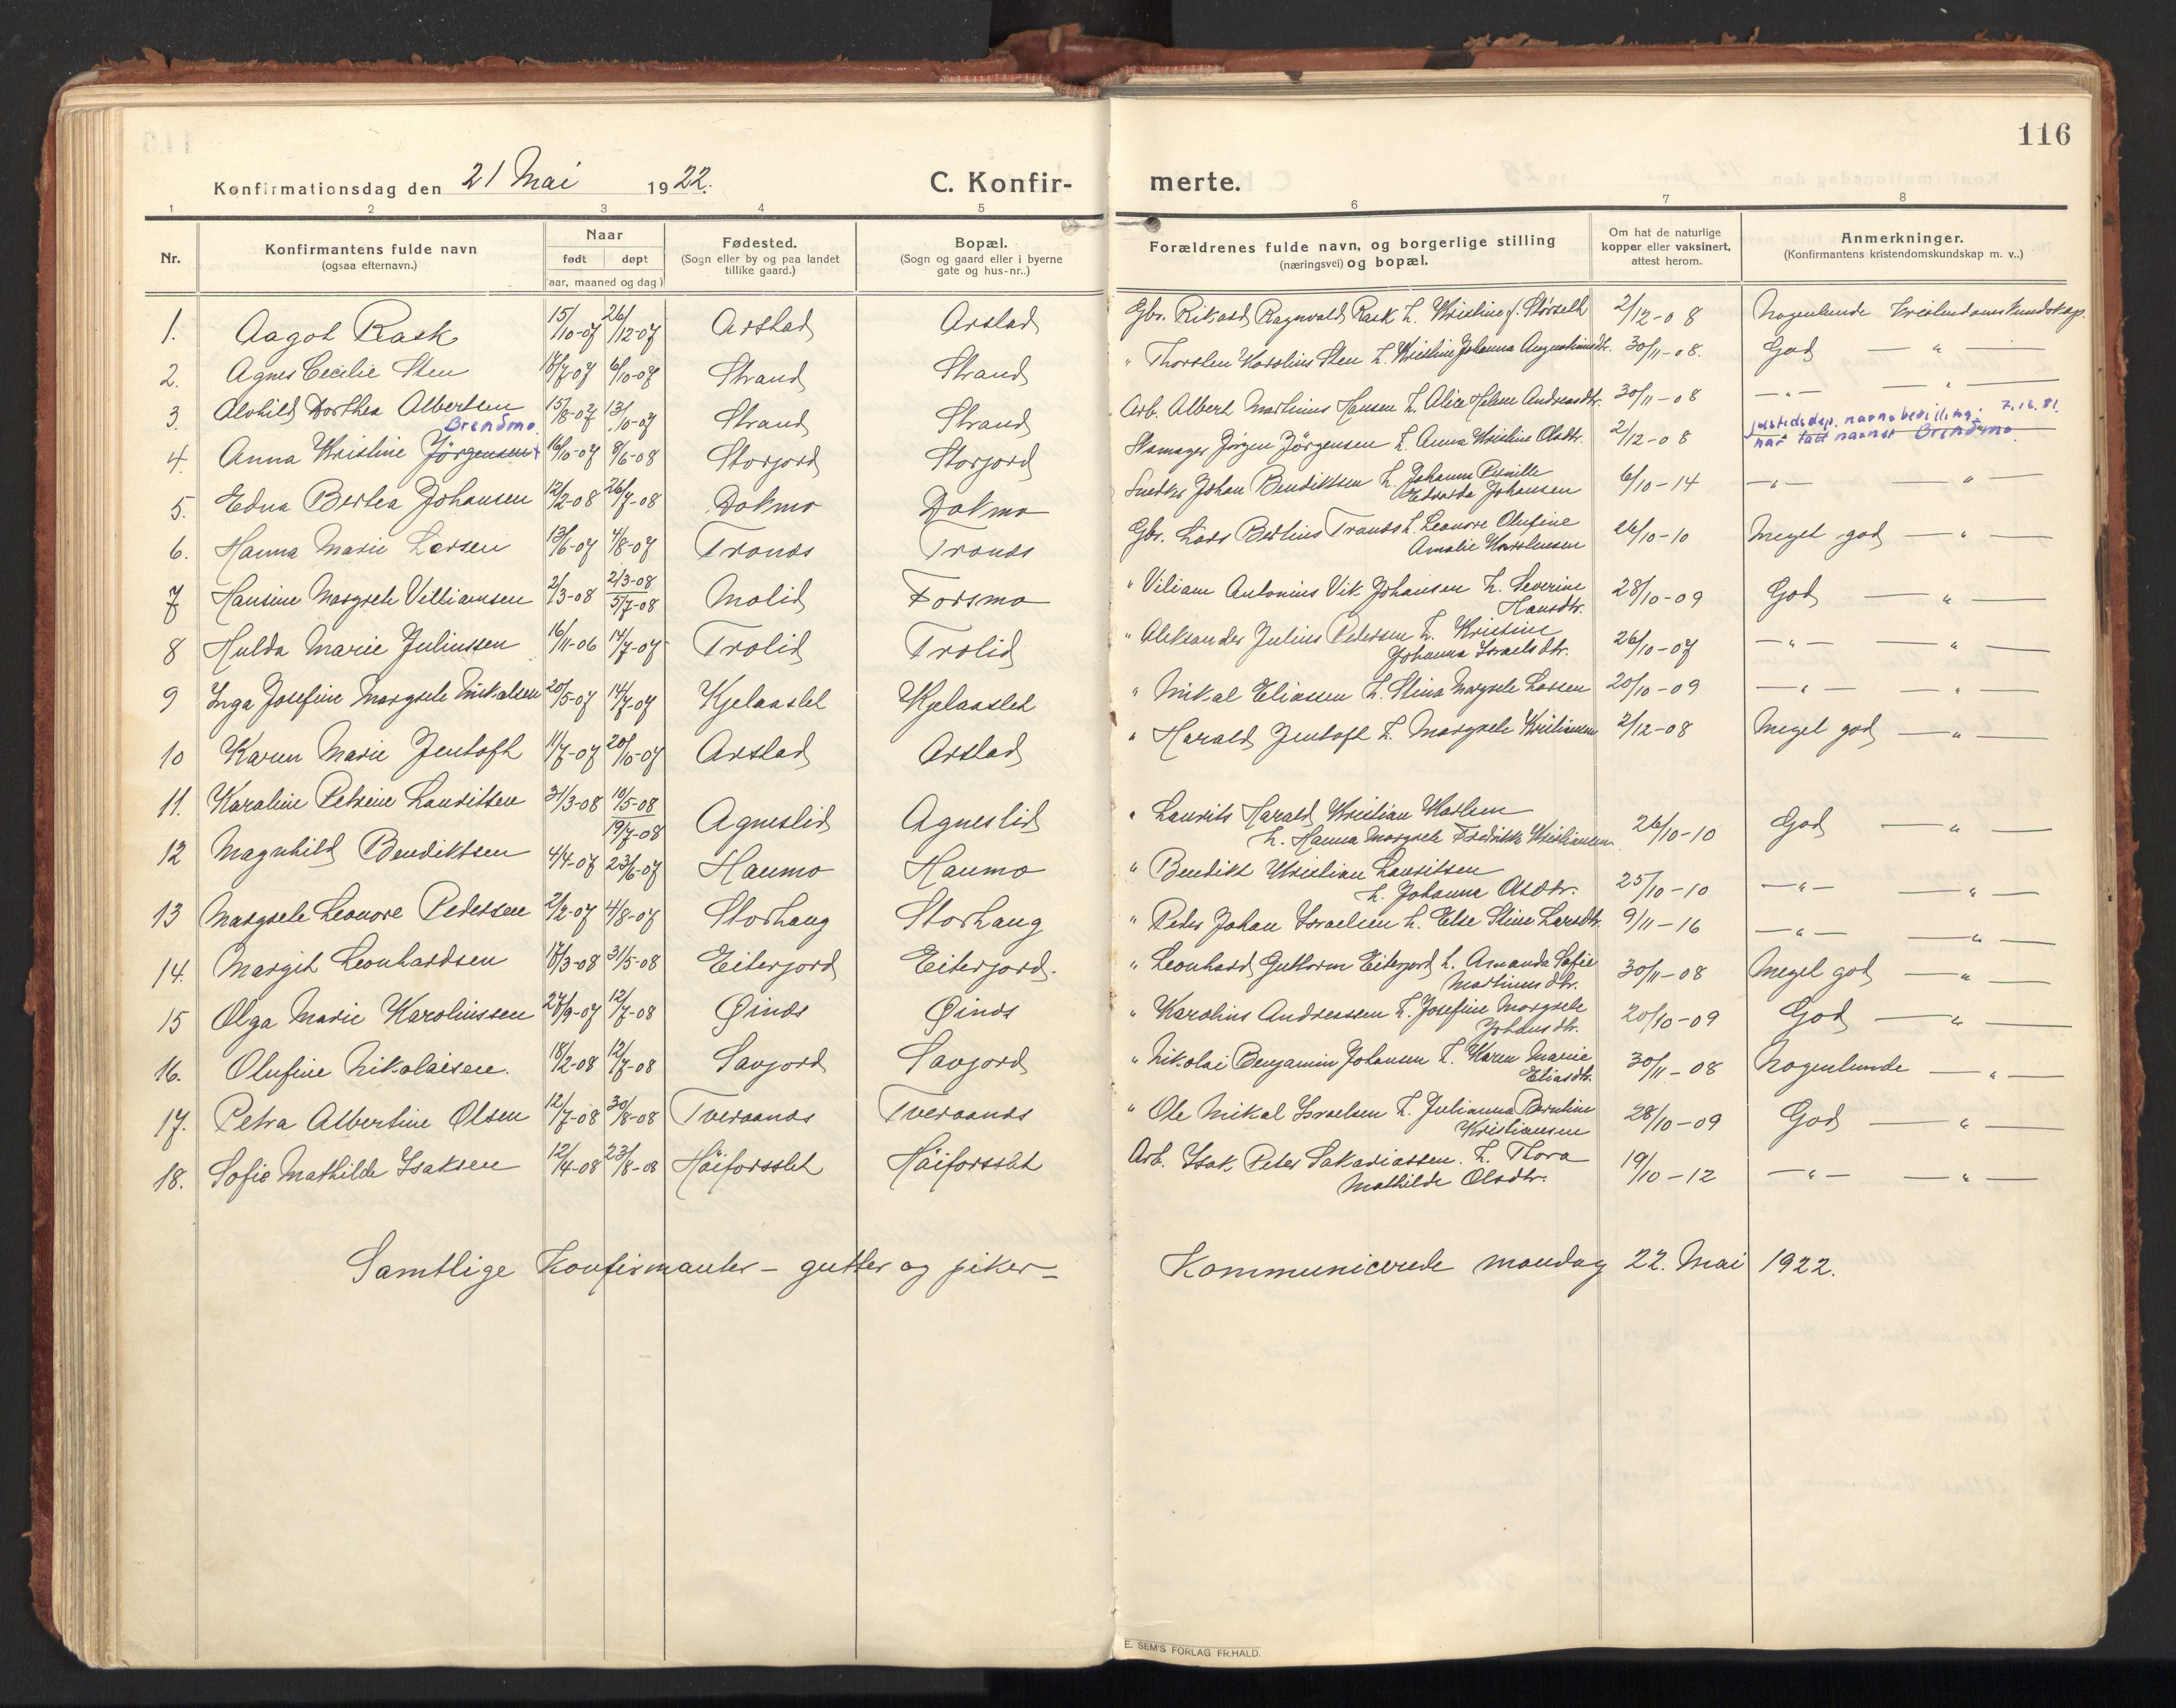 116
Konfirmationsdag den 21 Mai 1922. C. Konfir- merte.
1 2 3 4 5 6 7 8
Nr. Konfirmantens fulde navn (ogsaa efternavn.) Naar født døpt (aar, maaned og dag) Fødested. (Sogn eller by og paa landet tillike gaard.) Bopæl. (Sogn og gaard eller i byerne gate og hus-nr..) Forældrenes fulde navn, og borgerlige stilling (næringsvei) og bopæl. Om hat de naturlige kopper eller vaksinert, attest herom. Anmerkninger. (Konfirmantens kristendomskundskap m. v..)
1. Aagot Rask 15/10-07 26/12-07 Arstad Arstad Gbr. Rikard Ragnvald Rask h. Kristine f. Störseth 2/12-08 Nogenlunde Kristendomskundskap.
2. Agnes Cecilie Sten 17/7-07 6/10-07 Strand Strand " Thorsten Karolius Sten h. Kristine Johanna Augustinusdtr. 30/11-08. God — " —
3. Alvhild Dorthea Albertsen 15/8-07 13/10-07 Strand Strand Arb. Albert Martinus Hansen h. Alice Helene Andreasdtr. 30/11-08 — " — — " —
Brendmo. justisdep. navnebevilling. 7.12.81. har tatt navnet Brendmo.
4. Anna Kristine Jörgensen + 16/10-07 8/6-08 Storjord Storjord Skomager Jörgen Jörgensen h. Anna Kristine Olsdtr. 2/12-08
5. Edna Bertea Johansen 12/2-08 26/7-08 Dokmo Dokmo Snedker Johan Bendiktsen h. Johanna Pernille
Edvarda Johansen 6/10-14 — " — " —
6. Hanna Marie Larsen 13/6-07 4/8-07 Trones Trones Gbr. Lars Bertius Trones h. Leonore Olufine
Amalie Karolinesen 26/10-10 Meget god — " —
7 Hansine Margrete Villiamsen 2/3-08 2/3-08 5/7-08 Molid Forsmo " Viliam Antonius Vik Johansen h. Severine
Hansdtr. 28/10-09 God — " —
8 Hulda Marie Juliussen 16/11-06 14/7-07 Trolid Trolid " Aleksander Julius Petersen h. Kristine
Johanna Israelsdtr. 26/10-07 — " — — " —
9 Inga Josefine Margrete Mikalsen 20/5-07 14/7-07 Kjelaaslet Kjelaaslet " Mikal Eliassen h. Stina Margrete Larsen 20/10-09 — " — — " —
10 Karen Marie Jentoft 11/7-07 20/10-07 Arstad Arstad " Harald Jentoft h. Margrete Kristiansen 2/12-08 Meget god — " —
11. Karoline Petrine Lauritsen 31/3-08 10/5-08 19/7-08 Agneslid Agneslid " Laurits Harald Kristian Karlsen
h. Hanna Margrete Fredrikke Kristiansen. 26/10-10 God — " —
12 Magnhild Bendiktsen 4/4-07 23/6-07 Haumo Haumo " Bendikt Kristian Lauritsen
h. Johanna Olsdtr. 25/10-10 — " — — " —
13 Margrete Leonore Pedersen 2/2-07 4/8-07 Storhaug Storhaug " Peder Johan Israelsen h. Else Stine Larsdtr. 9/11-16 — " — — " —
14. Margit Leonhardsen 17/3-08 31/5-08 Eiterjord Eiterjord. " Leonhard Guttorm Eiterjord h. Amanda Sofie
Martinusdtr. 30/11-08 Meget god — " —
15 Olga Marie Karoliussen 27/9-07 12/7-08 Øines Øines " Karolius Andreassen h. Josefine Margrete
Johansdtr. 20/10-09 God — " —
16. Olufine Nikolaisen. 18/2-08 12/7-08 Savjord Savjord " Nikolai Benjamin Johansen h. Karen Marie
Eliasdtr. 30/11-08 Nogenlunde — " —
17. Petra Albertine Olsen 12/7-08 30/8-08 Tveraanes Tveraanes " Ole Mikal Israelsen h. Julianna Berntine
Kristiansen 28/10-09 God — " —
18. Sofie Mathilde Isaksen 12/4-08 23/8-08 Höiforsslet Höiforsslet Arb. Isak Peter Sakariassen. h. Thora
Mathilde Olsdtr. 19/10-12 — " — — " —
Samtlige Konfirmanter – gutter og piker – Kommunicerede mandag 22. Mai 1922.
E. SEM'S FORLAG FR.HALD.